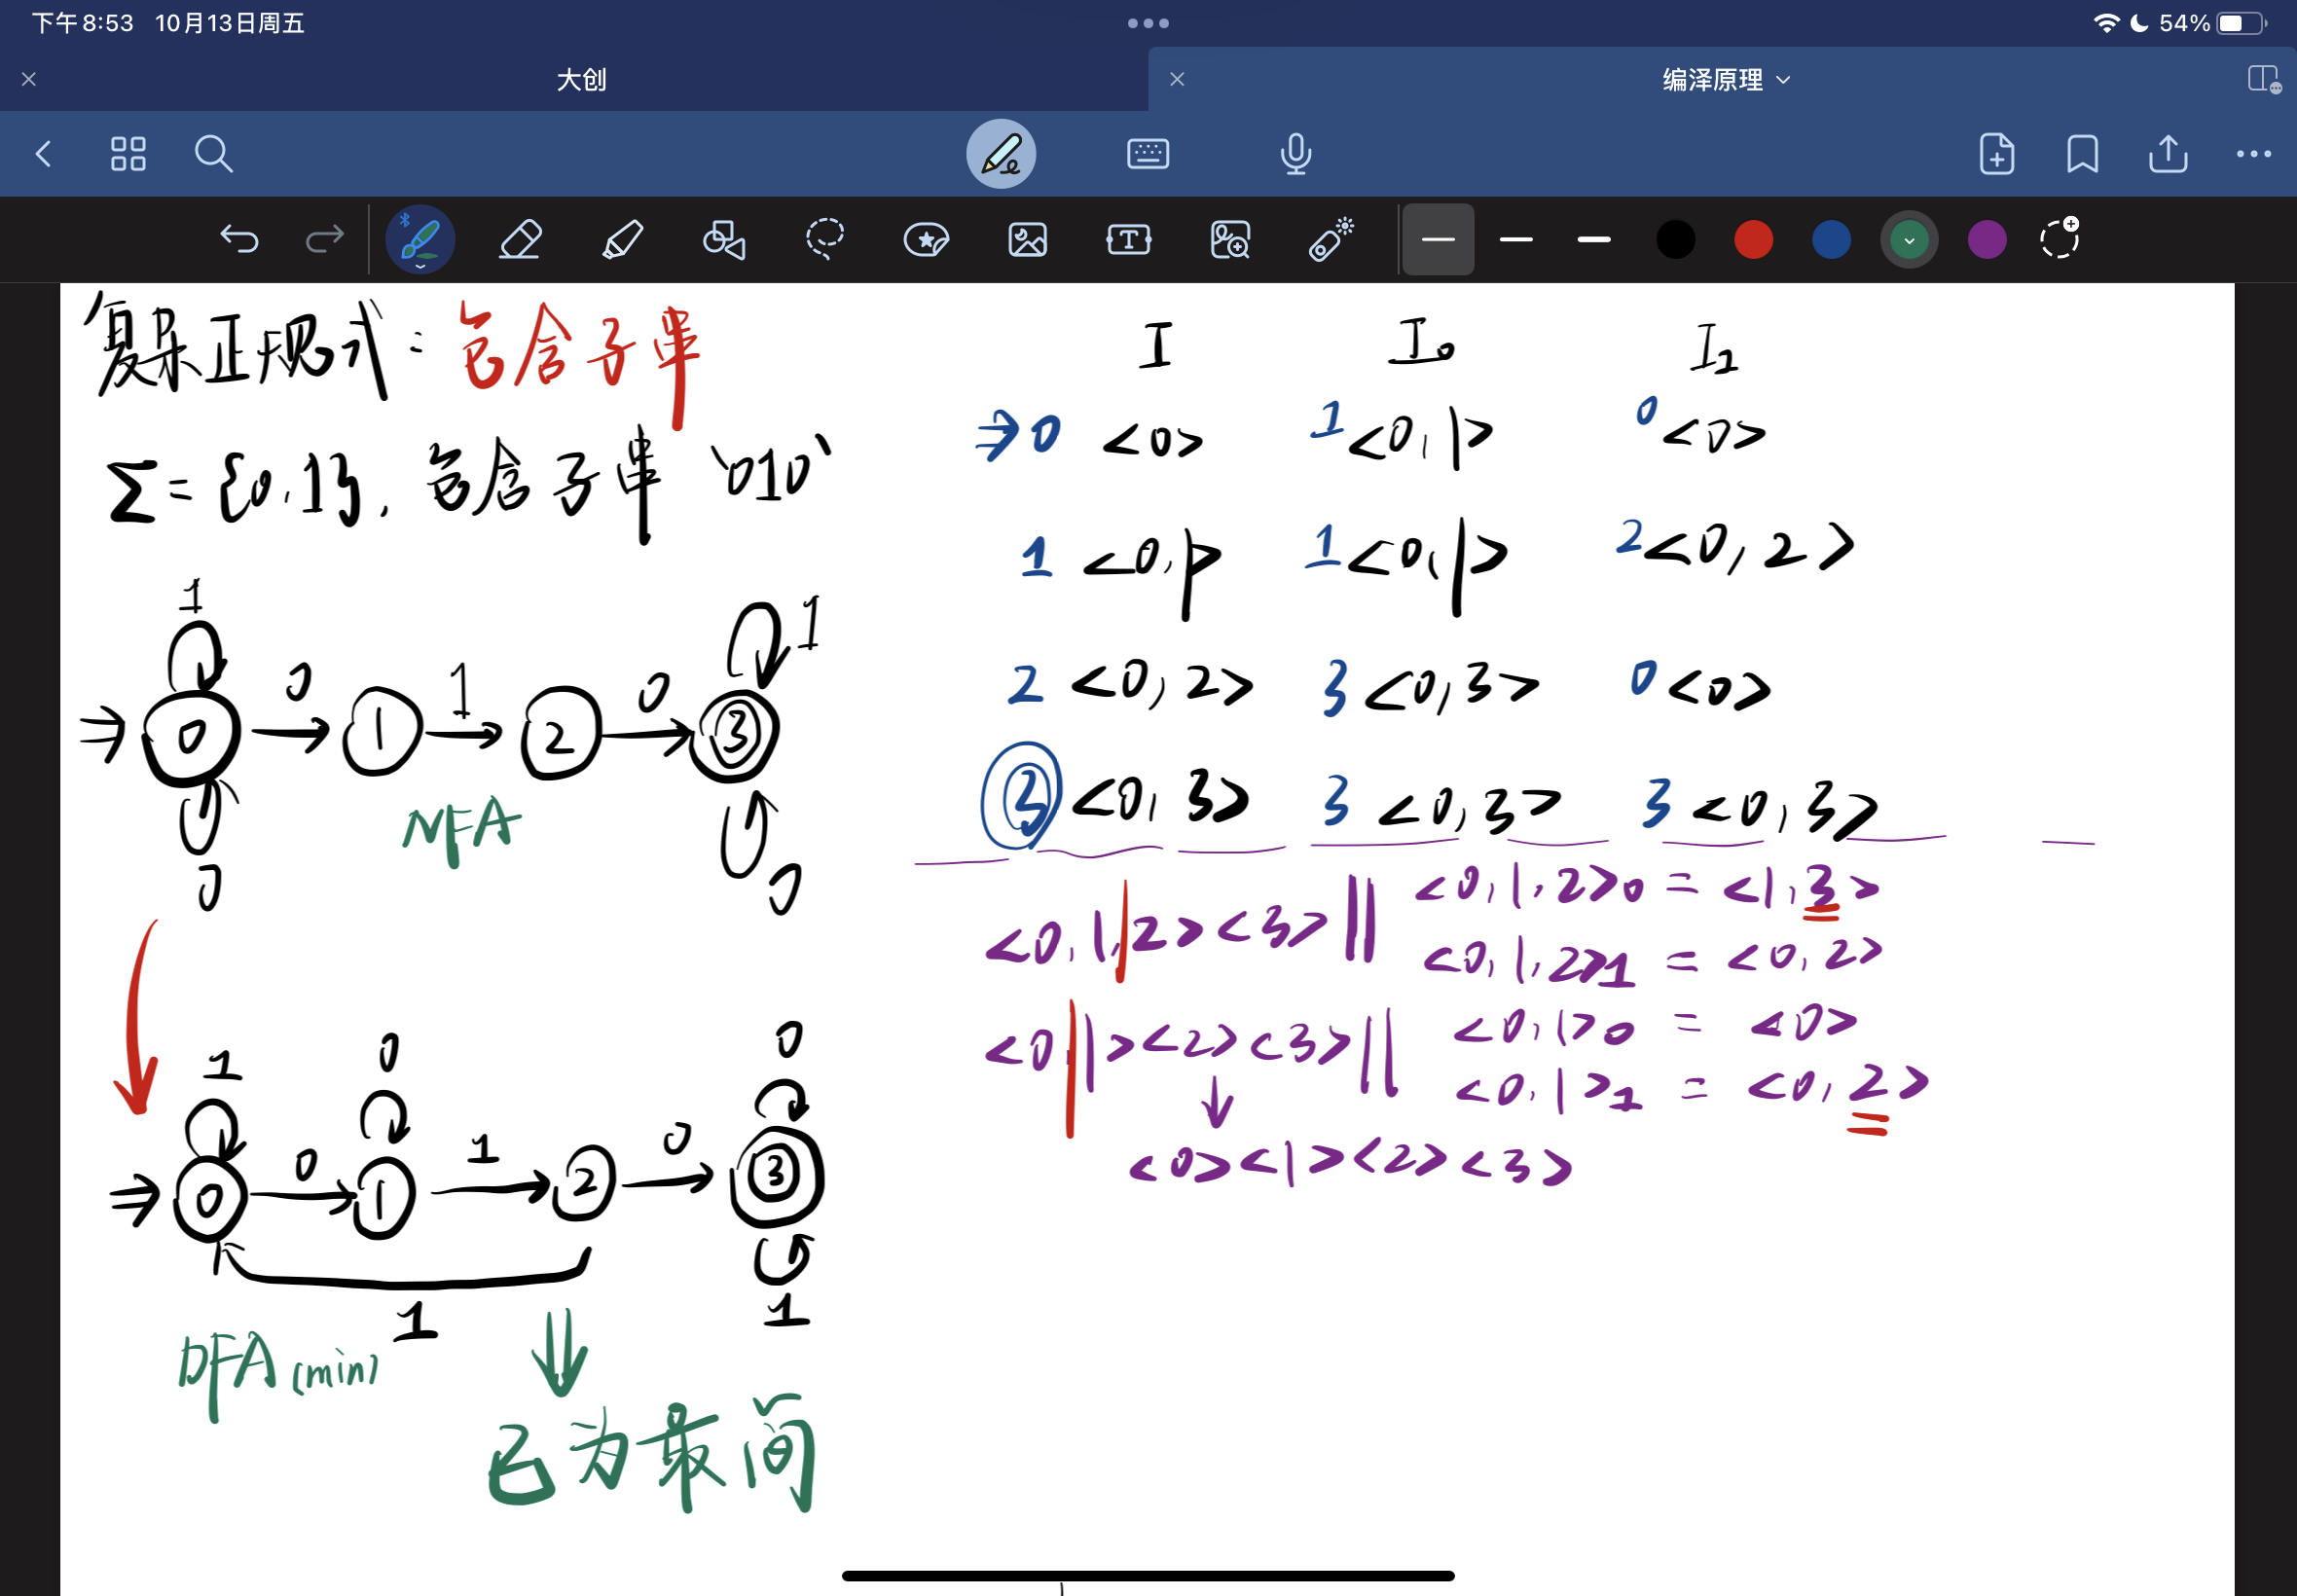 下午8:53 10月13日周五
54%
大创
编泽原理
复杂正规式：包含子串
Σ = {0,1}，包含子串 '010'
1
0
1
0
1
⇒ 0 1 2 3
NFA
0
0
1
0
0
0
1
0
⇒ 0 1 2 3
1
1
DFA (min)
已为最简
I I₀ I₁
⇒ 0 <0> 1 <0,1> 0 <0>
1 <0,1> 1 <0,1> 2 <0,2>
2 <0,2> 3 <0,3> 0 <0>
3 <0,3> 3 <0,3> 3 <0,3>
<0,1,|2><3> || <0,1,2>₀ = <1,3>
<0,1,2>₁ = <0,2>
<0|1><2><3> || <0,1>₀ = <0>
<0,1>₁ = <0,2>
↓
<0><1><2><3>